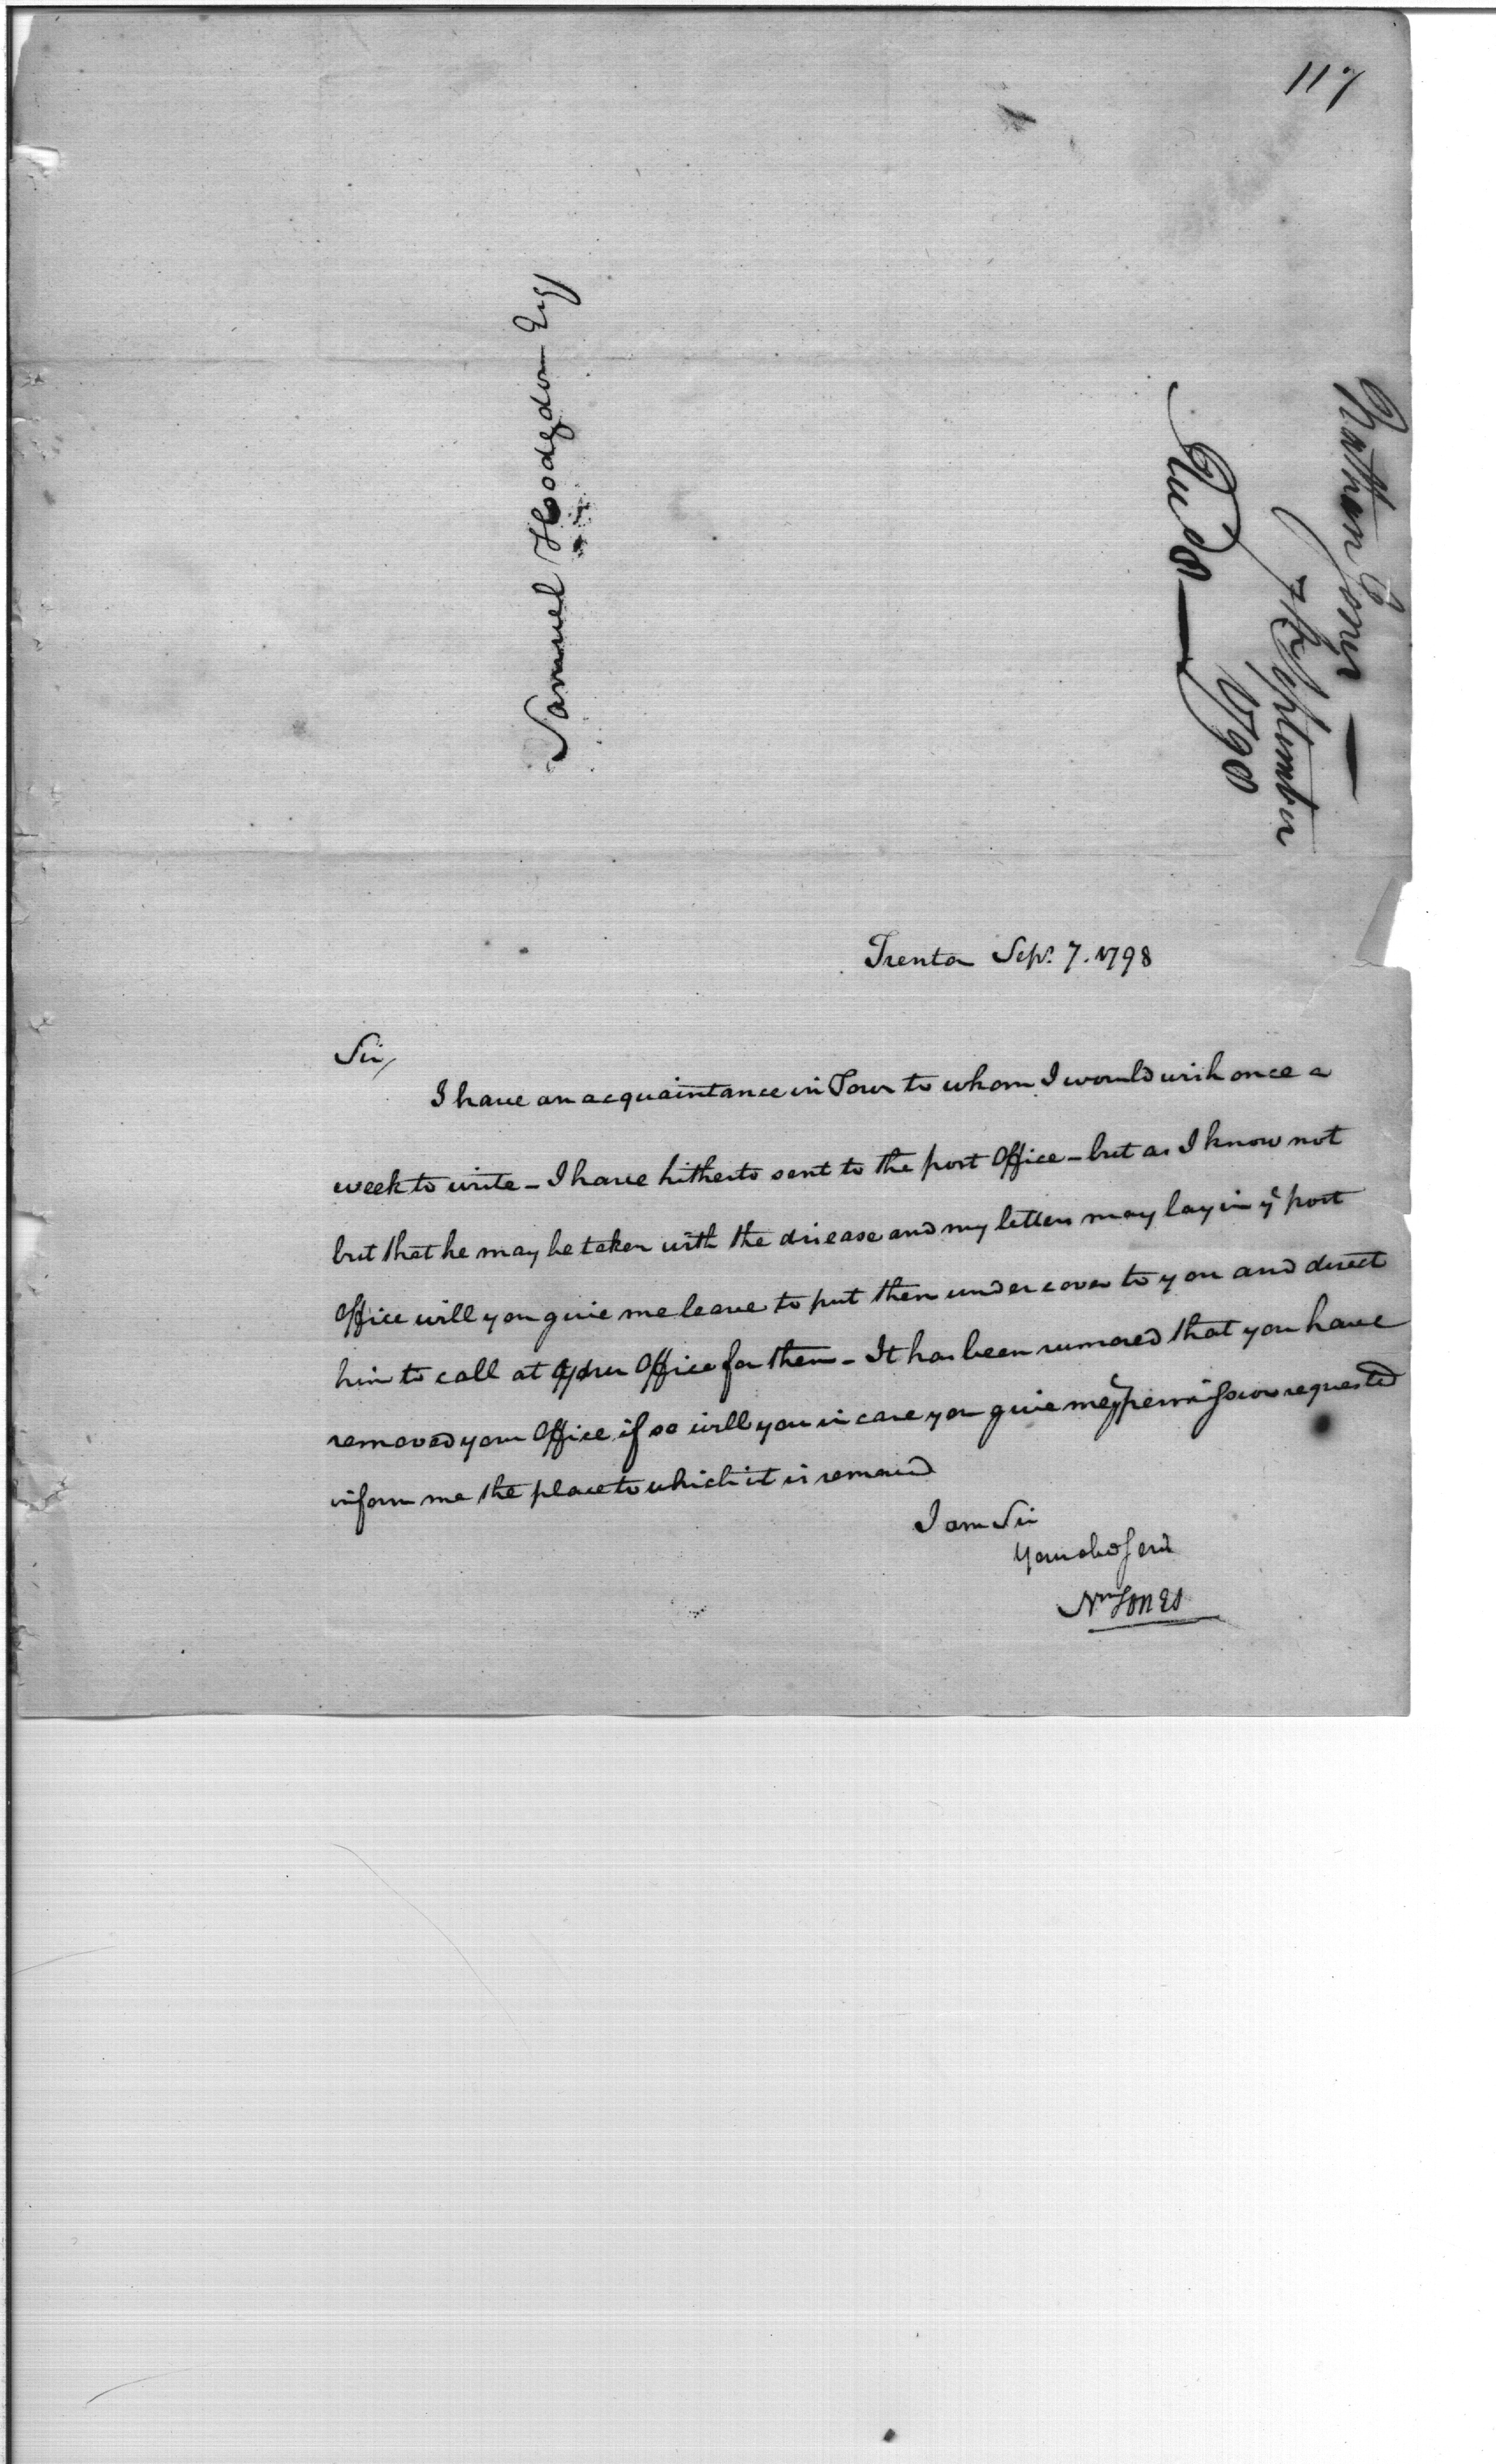 117
Samuel Hodgdon Esq
Nathan Jones —
7th September
1798
Trenton Sepr. 7. 1798
Sir,
I have an acquaintance in Town to whom I would wish once a
week to write – I have hitherto sent to the post Office – but as I know not
but that he may be taken with the disease and my letters may lay in ye post
Office will you give me leave to put them under cover to you and direct
him to call at your Office for them – It has been rumored that you have
removed your Office if so will you in case you give me ye permission requested
inform me the place to which it is removed
I am Sir
Your obd Servt
Nn Jones